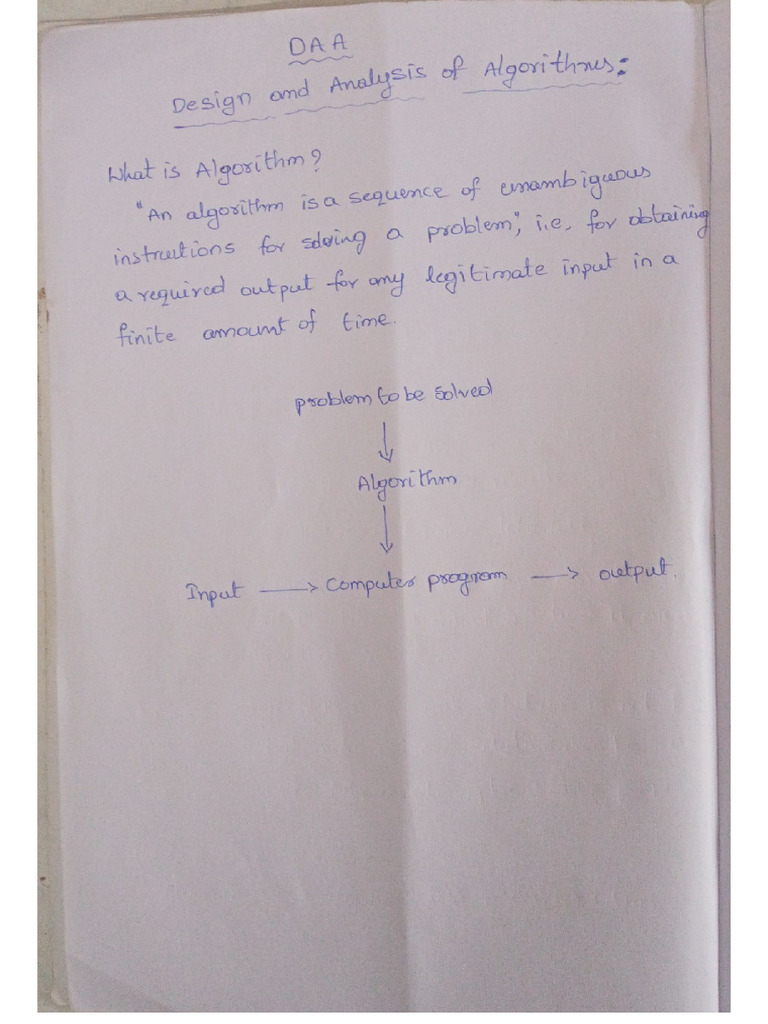 DAA
Design and Analysis of Algorithms:
What is Algorithm?
"An algorithm is a sequence of unambiguous
instructions for solving a problem", i.e, for obtaining
a required output for any legitimate input in a
finite amount of time.
problem to be solved
↓
Algorithm
↓
Input → Computer program → output.